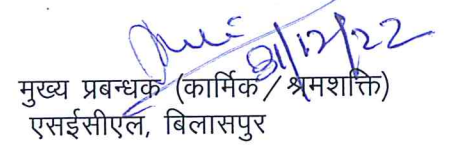 31/12/22
मुख्य प्रबन्धक (कार्मिक/श्रमशक्ति)
एसईसीएल, बिलासपुर